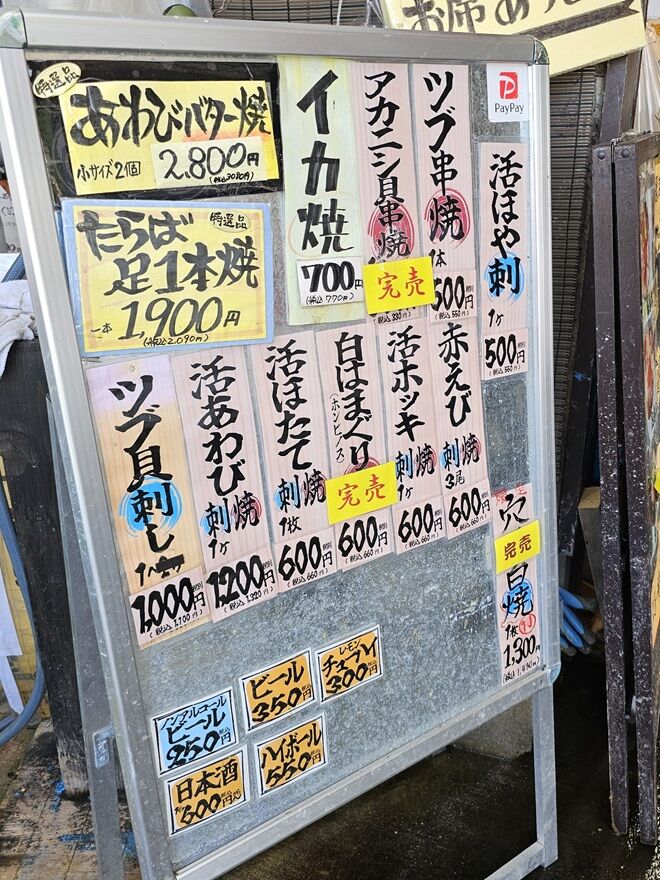 お席あ
PayPay
特選品
あわびバター焼
小サイズ2個
2,800円
(税込3080円)
特選品
たらば
足1本焼
一本
1,900円
(税込2,090円)
イカ焼
700円
(税込770円)
アカニシ貝串焼
完売
(税込330円)
ツブ串焼
1本
500円
(税込550円)
活ほや刺
1ヶ
500円
(税込550円)
ツブ貝刺し
1,000円
(税込1,100円)
活あわび
刺 焼
1ヶ
1,200円
(税込1,320円)
活ほたて
刺 焼
1枚
600円
(税込660円)
白はまぐり
(ホンビノス)
完売
600円
(税込660円)
活ホッキ
刺 焼
1ヶ
600円
(税込660円)
赤えび
刺 焼
3尾
600円
(税込660円)
穴
完売
白焼
1枚
1,300円
ノンアルコール
ビール
250円
ビール
350円
レモン
チューハイ
300円
日本酒
600円
ハイボール
550円